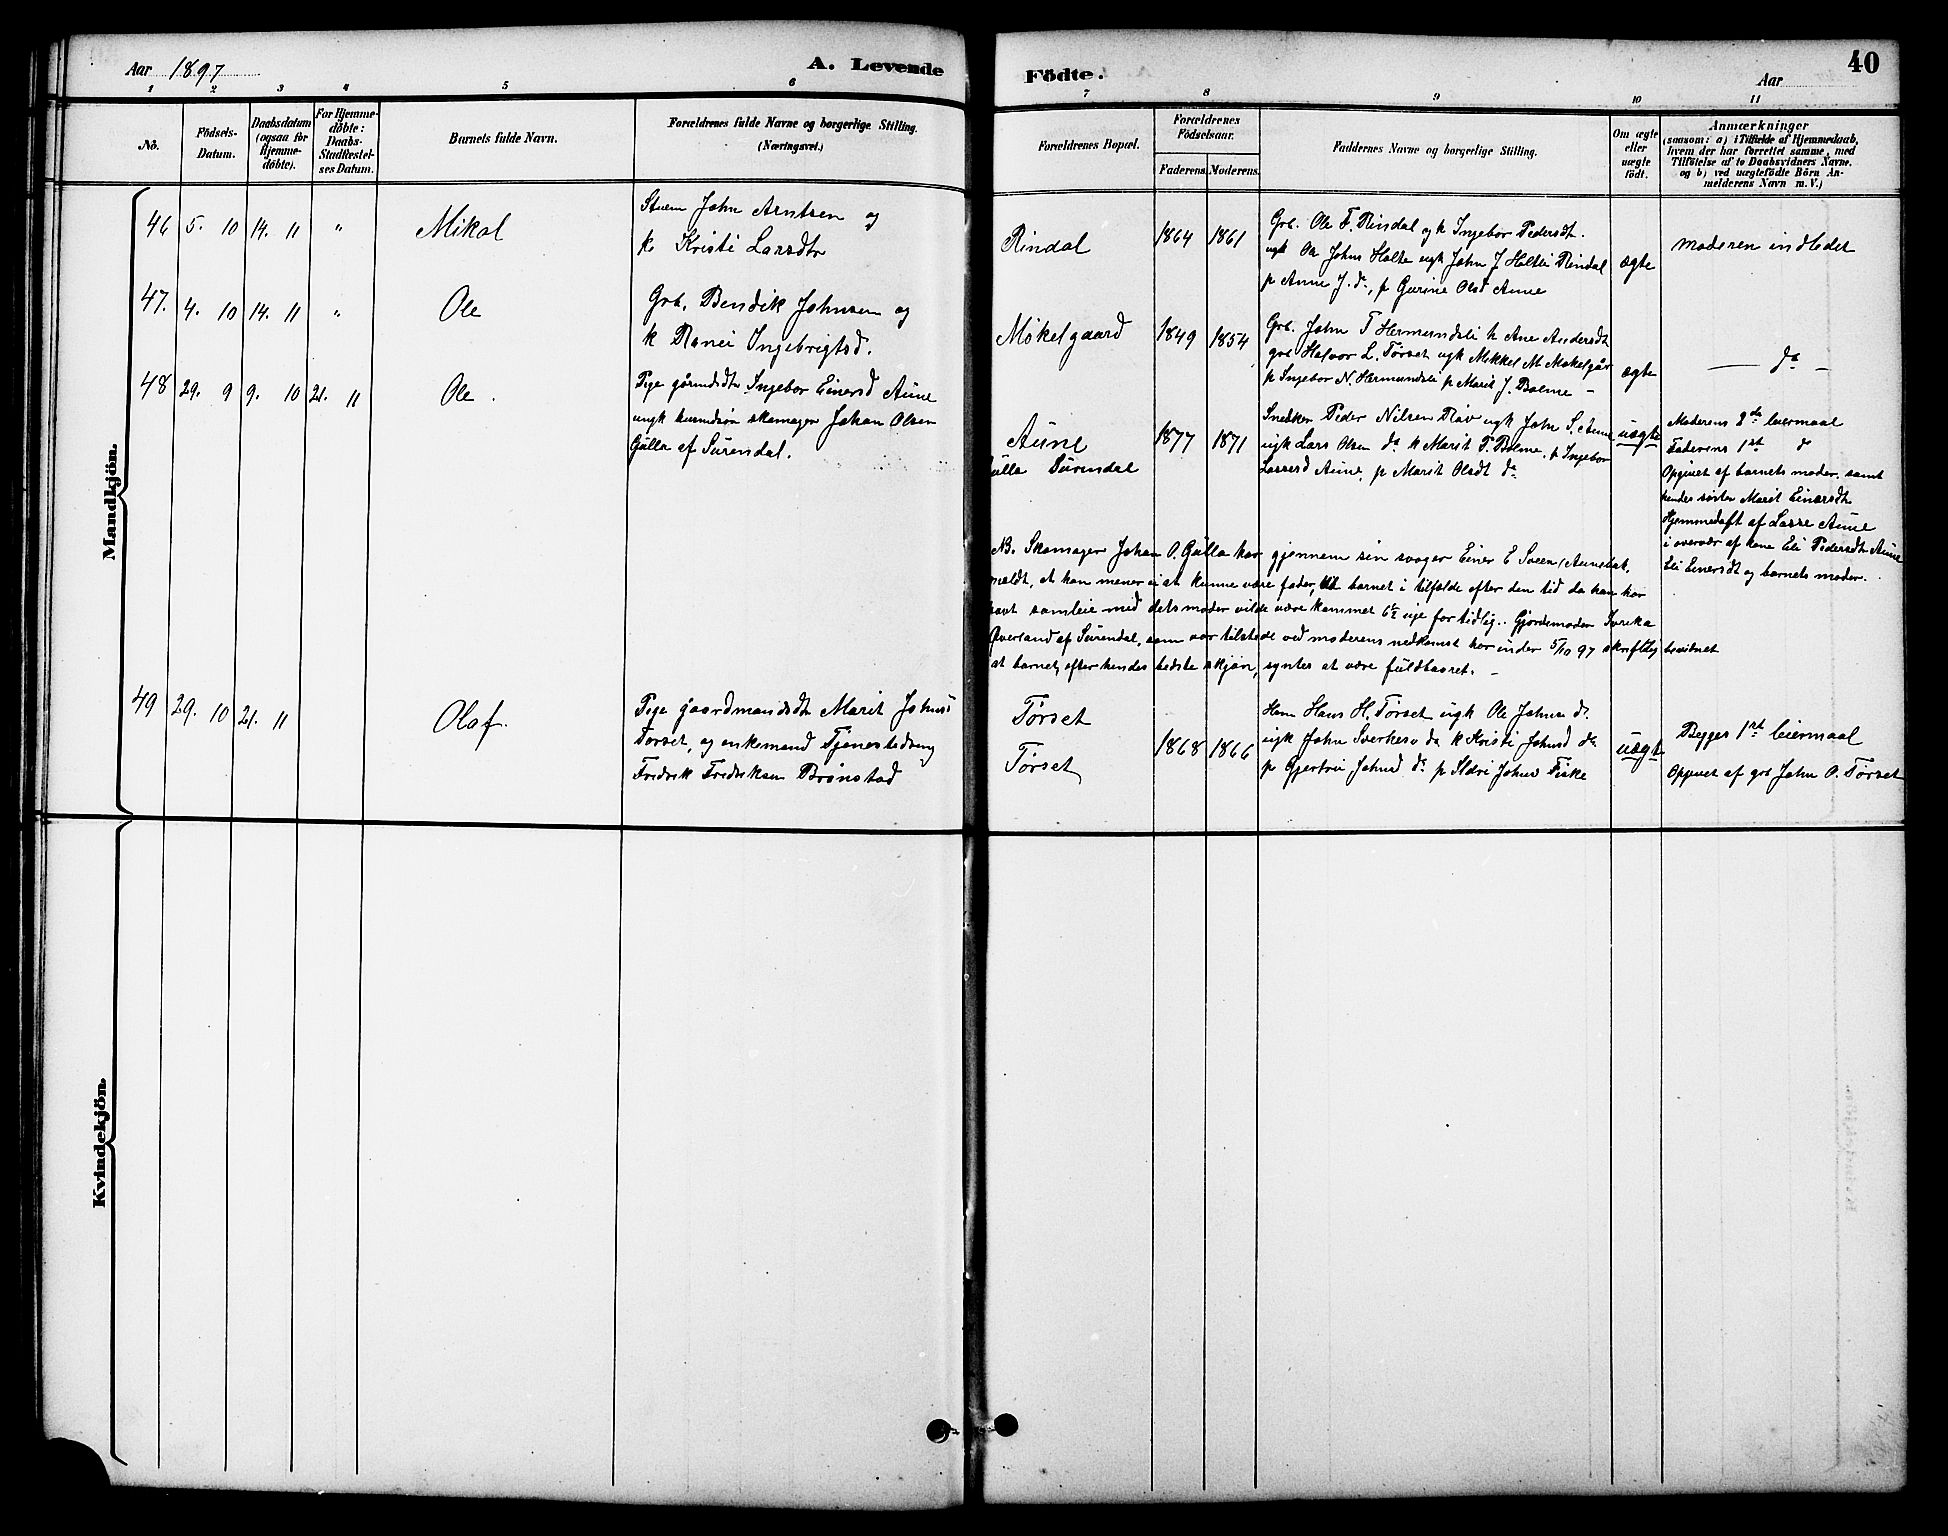 Aar 1897
A. Levende
Födte.
Aar
40
1 2 3 4 5 6 7 8 9 10 11
No.
Födsels-
Datum.
Daabsdatum
(ogsaa for
Hjemme-
döbte).
For Hjemme-
döbte:
Daabs-
Stadfestel-
ses Datum.
Barnets fulde Navn.
Forældrenes fulde Navne og borgerlige Stilling.
(Næringsvei.)
Forældrenes Bopæl.
Forældrenes
Födselsaar.
Faderens. Moderens.
Faddernes Navne og borgerlige Stilling.
Om ægte
eller
uægte
födt.
Anmærkninger
(saasom: a) i Tilfælde af Hjemmedaab,
hvem der har forrettet samme, med
Tilföielse af to Daabsvidners Navne.
og b) ved uægtefödte Börn An-
melderens Navn m. V.)
Mandkjön.
46 5. 10 14. 11 " Mikal
John Arntsen og
k Kristi Larsdtr
Rindal
1864 1861
Grb. Ole F. Rindal og k Ingebor Pedersdt.
ugk Ole Johns Halte ugk John J Haltli Rindal
p Anne J. do, p Gurine Olsd Aune
ægte
Moderen indledet
47. 4. 10 14. 11 " Ole
Grb. Bendik Johnsen og
k Ranei Ingebrigtsd.
Møkelgaard
1849 1854
Grb. John T Hermundsli k Ane Andersdt
grb Halvor L. Tørset ugk Mikkel M Møkelgår
p Ingebor N. Hermundsli p Marit J. Bolme –
ægte
— do –
48 29. 9 9. 10 21. 11 Ole.
Pige gårmdsdtr Ingebor Einersd Aune
ungk husmdsøn skomager Johan Olsen
Gulla af Surendal.
Aune
Gulla Surendal
1877 1871
Snekker Peder Nilsen Løv ugk John S. Aune
ugk Lars Olsen do k Marit P. Bolme, p Ingebor
Larsersd Aune, p Marit Olsdt do
uægte
Moderens 2de leiermaal
Faderens 1st do
Opgivet af barnets moder, samt
hendes søster Marit Einersdt
Hjemmedøft af Lasse Aune
i overvær af kone Eli Pedersdt Aune
Eli Einersdt og barnets moder.
NB. Skomager Johan O. Gulla har gjennem sin svoger Einer E Sveen /Aunebak.
meldt, at han mener ei at kunne være fader, da barnet i tilfælde efter den tid da han har
havt samleie med dets moder vilde være kommet 6 1/2 uge for tidlig.. Gjordemoder Sverika
Øverland af Surendal, som var tilstede ved moderens nedkomst har under 5/10 97 skriftlig bevidnet
at barnet, efter hendes bedste skjøn, syntes at være fuldbaaret. –
49 29. 10 21. 11 Olaf.
Pige gaardmandsdt Marit Johns
Torset, og enkemand Tjenestedreng
Fredrik Fredriksen Brønstad
Tørset
Tørset
1868 1866
Hans H. Tørset ugk Ole Johnsen do.
ugk John Sverkesen do k Kristi Johnsd do
p Gjertru Johnsd do p Sldri Johnsd Fiske
uægt
Begges 1st leiermaal
Opgivet af grb John O. Tørset
Kvindekjön.